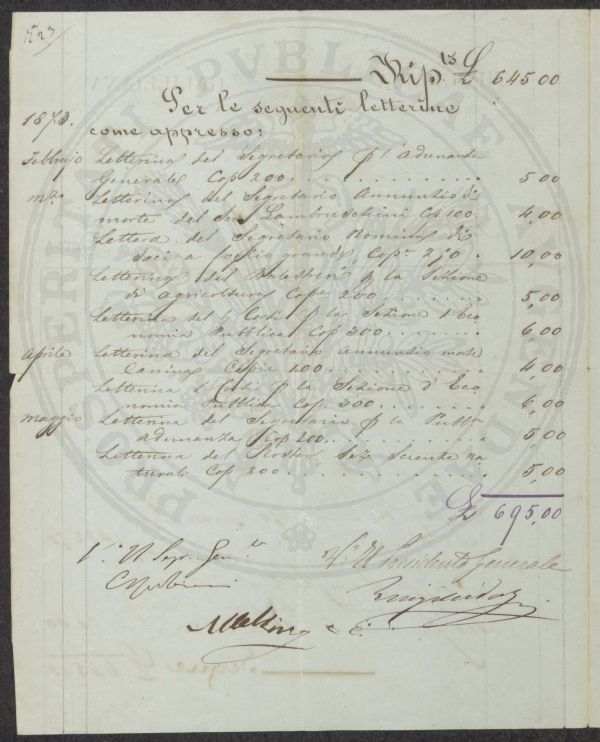 Rip.to £ 645 00
Per le seguenti letterine
1873. come appresso:
Febbrajo Letterina del Segretario p l'adunanze
Generale Cop 200 . . . . . . . . . . 5,00
mzo Letterina del Segretario Annunzio di
morte del Sen Lambruschini Cop 100. 4,00
Lettera del Segretario Nomina di
Soci a foglio grande Cope 250 . 10,00
Letterina del p la Sezione
di Agricoltura Cope 200 . . . . . . . 5,00
Letterina del p la Sezione d'Eco
nomia Pubblica Cop 300 . . . . . . . 6,00
Aprile Letterina del Segretario Annunzio morte
Canina Copie 100 . . . . . . . . 4,00
Letterina p la Sezione d'Eco
nomia Pubblica Cop. 300 . . . . . . . 6,00
Maggio Letterina del Segretario p la Pubb
adunanza Cop 200 . . . . . . . . 5,00
Letterina del Sezo Scienze na
turali Cop 200 . . . . . . . . . . 5,00
£ 695,00
Vo Il Segr. Gen. le
Vo Il Presidente Generale
PROSPERITATI PVBLICAE AVGENDAE